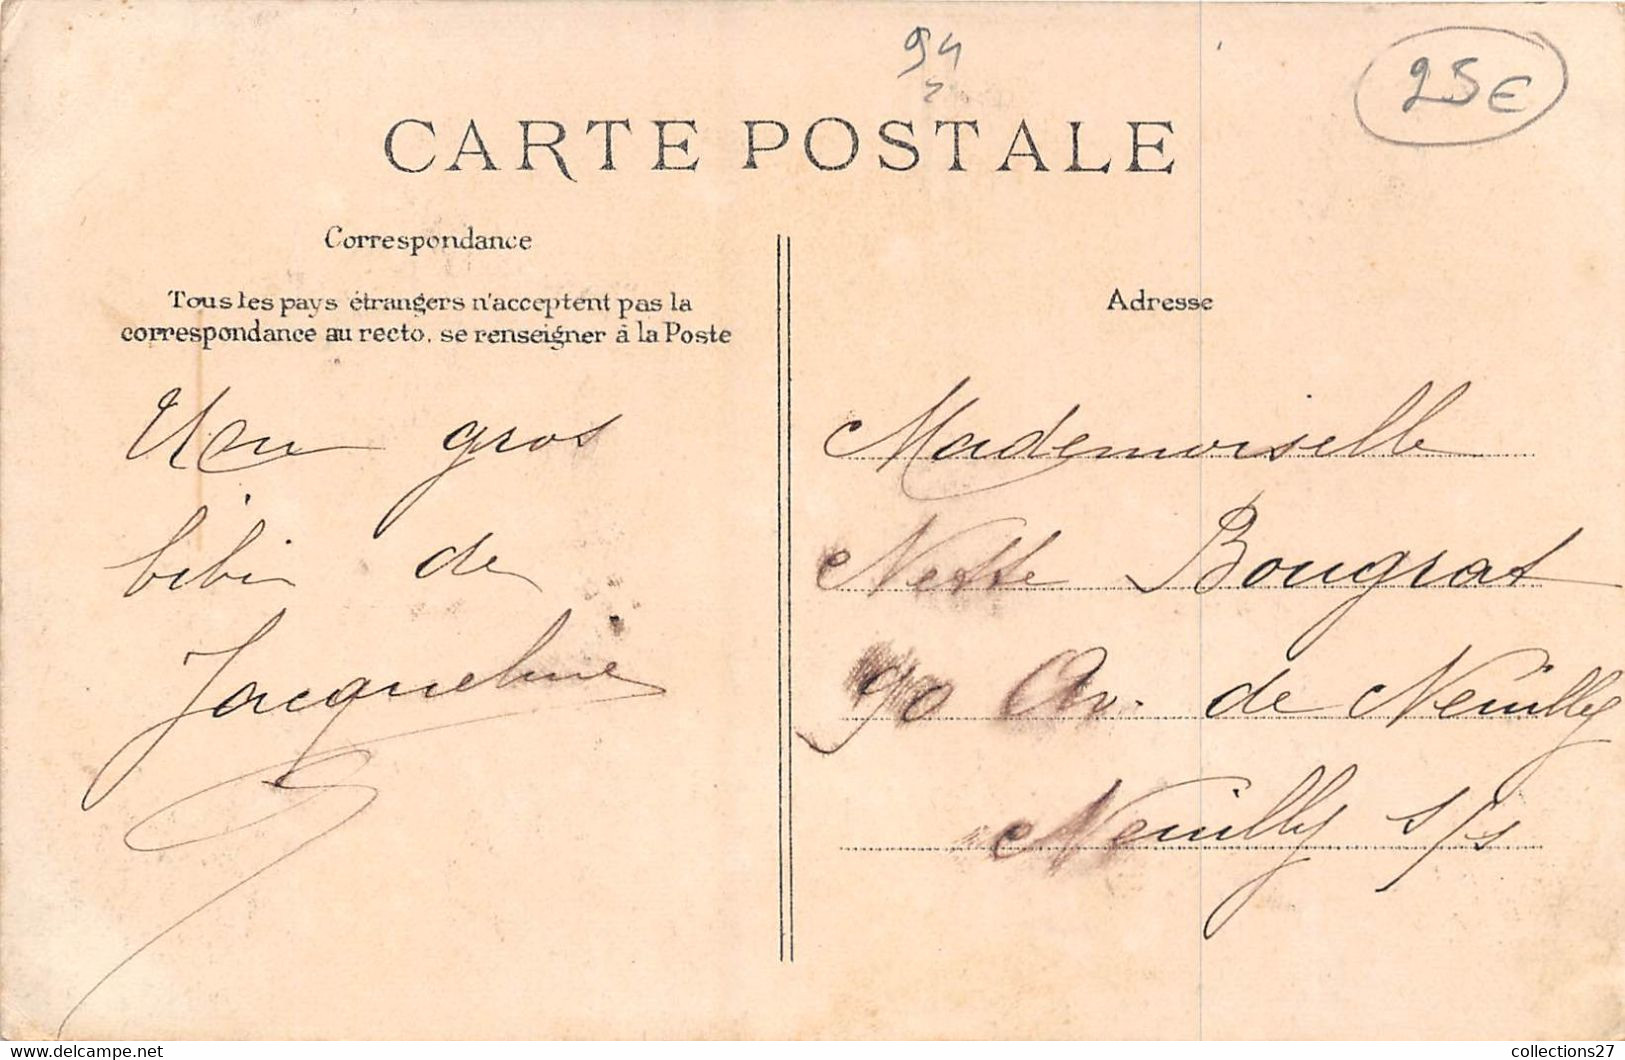 94
25€
CARTE POSTALE
Correspondance
Tous les pays étrangers n'acceptent pas la
correspondance au recto, se renseigner à la Poste
Un gros
bibi de
Jacqueline
Adresse
Mademoiselle
Nette Bougrat
90 Av. de Neuilly
Neuilly s/s
collections27